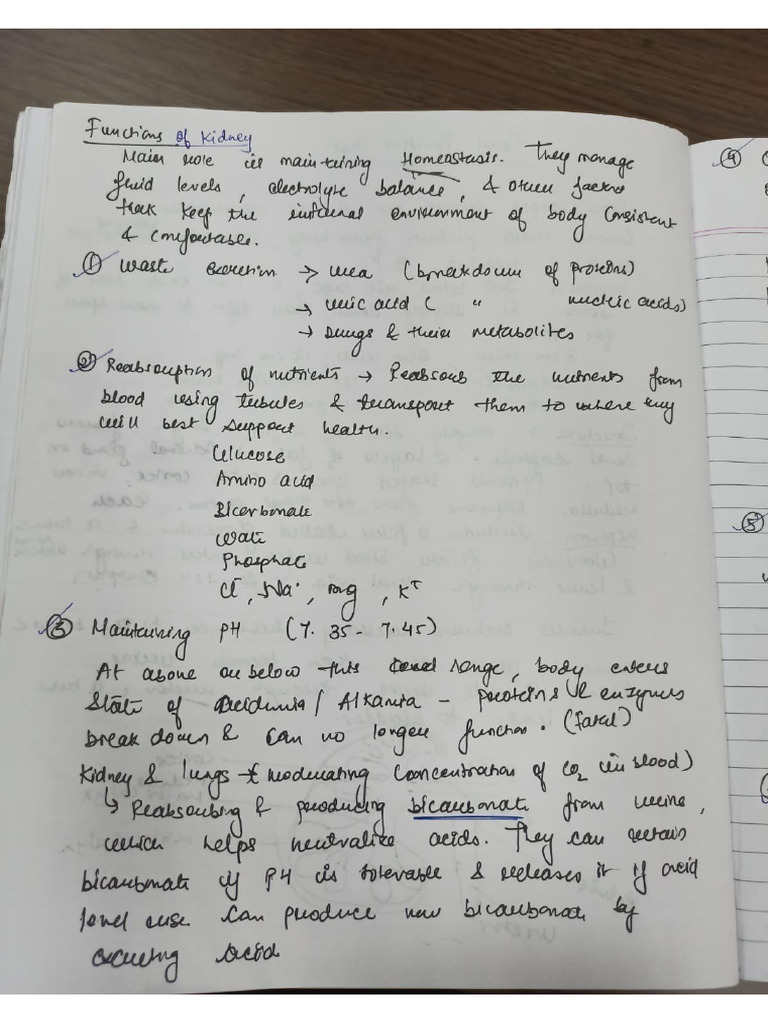 Functions of Kidney
Main role is maintaining Homeostasis. They manage
fluid levels, electrolyte balance, & other factors
that keep the internal environment of body consistent
& comfortable.
① Waste excretion → urea (breakdown of proteins)
→ uric acid ( " nucleic acids)
→ Drugs & their metabolites
② Reabsorption of nutrients → Reabsorb the nutrients from
blood using tubules & transport them to where they
will best support health.
Glucose
Amino acid
Bicarbonate
Water
Phosphate
Cl⁻, Na⁺, mg, K⁺
③ Maintaining PH (7.35-7.45)
At above or below this range, body enters
State of Acidemia / Alkamia - proteins & enzymes
break down & can no longer function. (fatal)
Kidney & lungs moderating Concentration of CO₂ in blood)
↳ Reabsorbing & producing bicarbonate from urine,
which helps neutralize acids. They can retain
bicarbonate if PH is tolerable & releases it if acid
level rise can produce new bicarbonate by
excreting acid
④
⑤